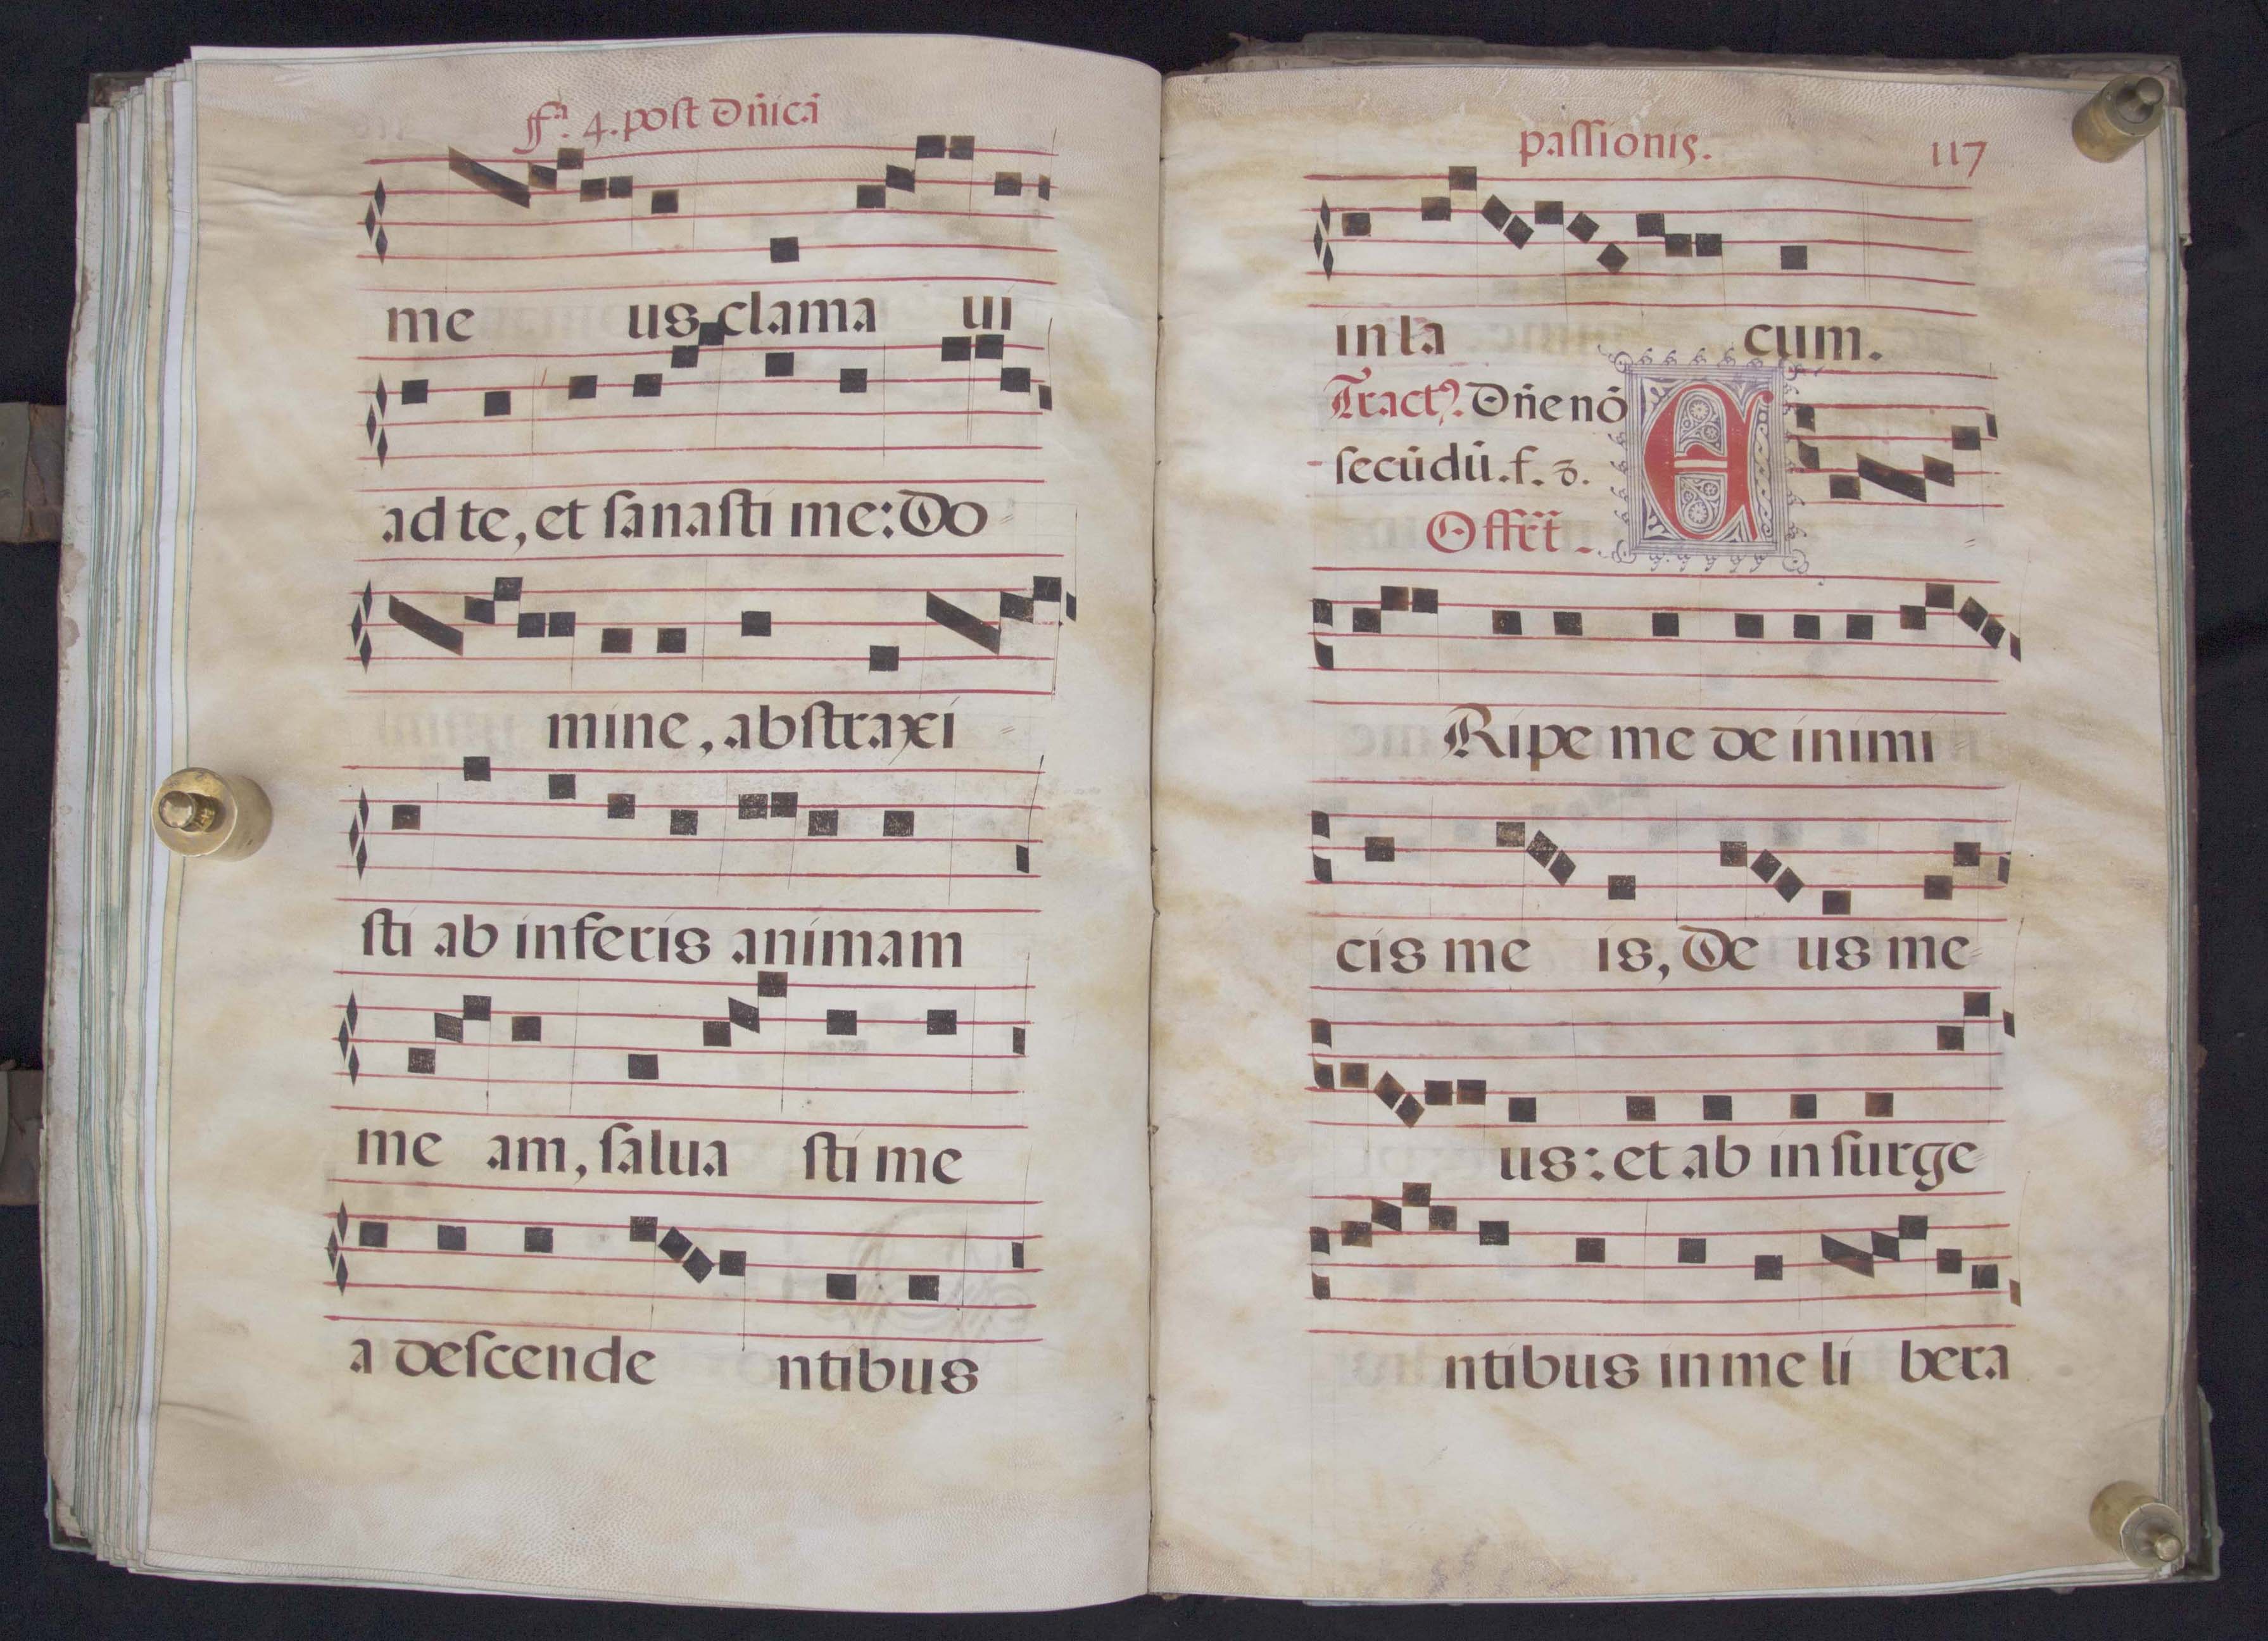 ff.ª 4. post Dn̄icā
me us clama ui
ad te, et ſanaſti me: Do
mine, abſtraxi
ſti ab inferis animam
me am, ſalua ſti me
a deſcende ntibus
paſſionis. 117
in la cum.
Tractꝰ. Dn̄e nō
ſecūdū. f. ꝺ̄.
Offert̄. E
Ripe me de inimi
cis me is, De us me
us: et ab inſurge
ntibus in me li bera